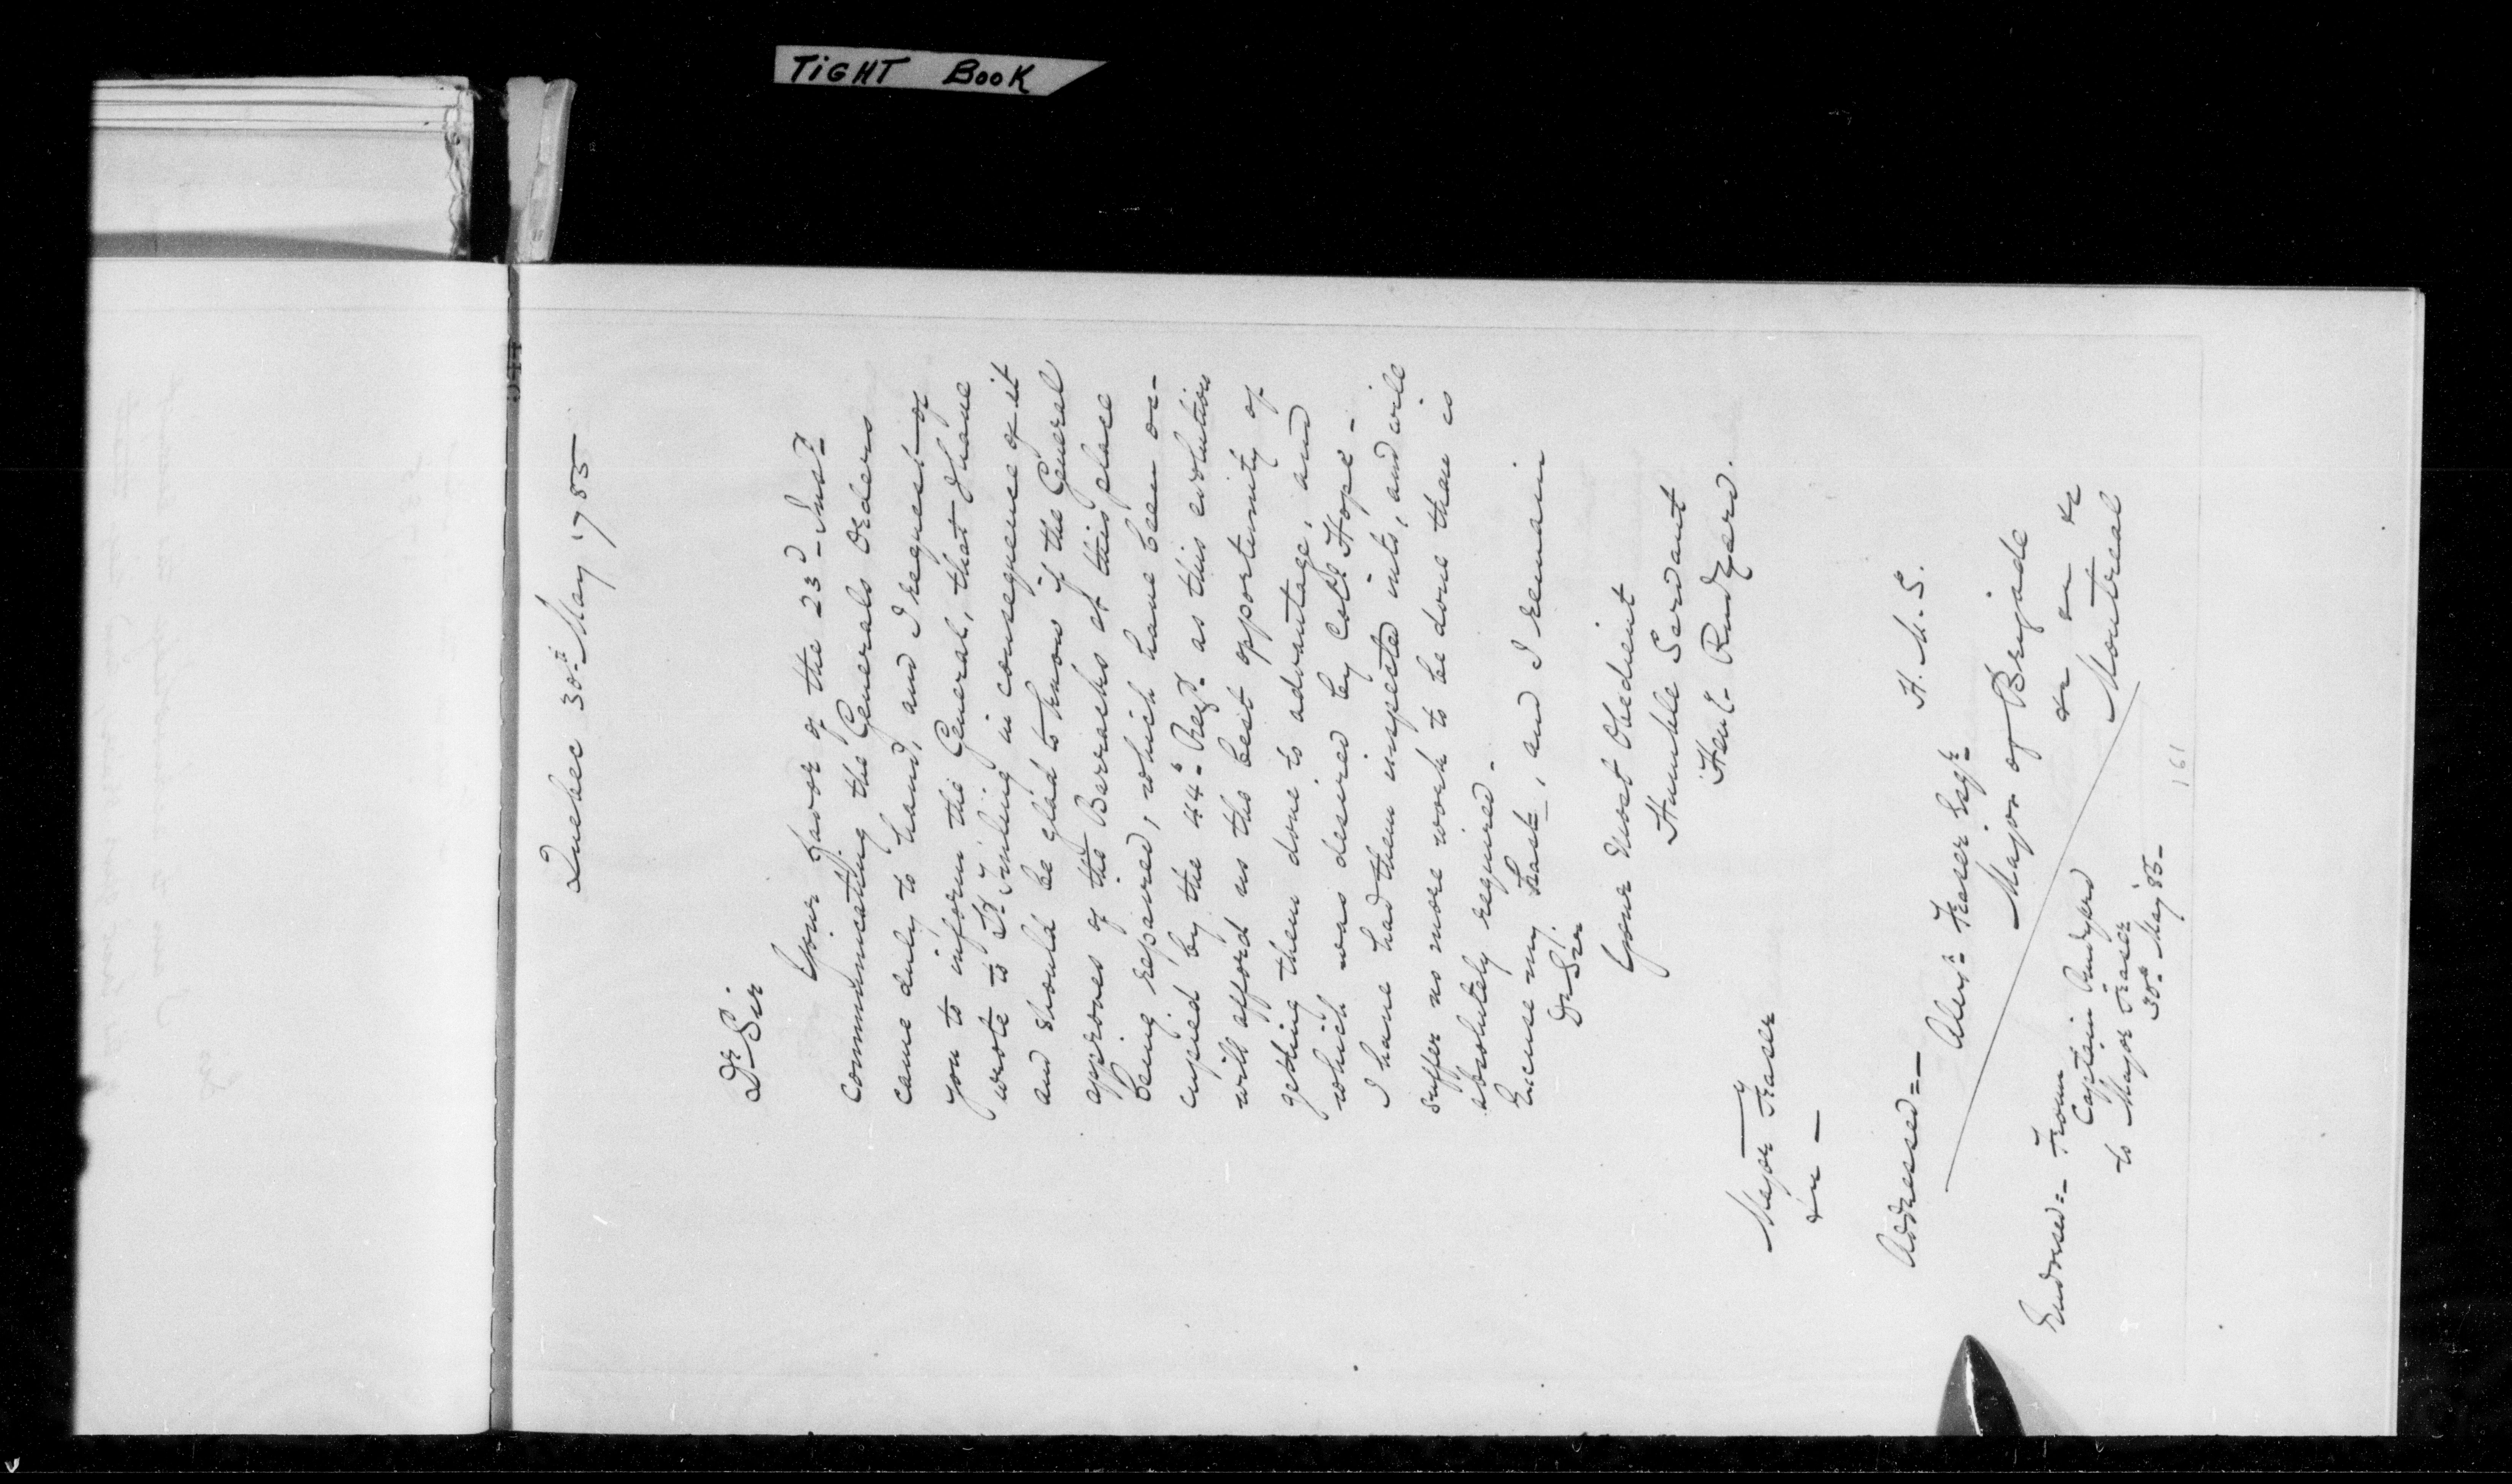 TIGHT BOOK
Quebec 30th. May 1785
Dr. Sir
Your favor of the 23d. Inst.
communicating the Generals Orders
came duly to hand, and I request of
you to inform the General, that I have
wrote to Lt. Tinling in consequence of it
and should be glad to know if the General
approves of the Barracks at this place
being repaired, which have been oc-
cupied by the 44th. Regt. as this evolution
will afford us the best opportunity of
getting them done to advantage, and
which was desired by Coll. Hope -
I have had them inspected into, and will
suffer no more work to be done than is
absolutely required -
Excuse my haste, and I remain
Dr. Sir
Your most Obedient
Humble Servant
Heny. Rudyerd.
Major Fraser
&c -
Addressed = - H. M. S.
Alexr. Fraser Esqr.
Major of Brigade
&c &c &c
Montreal
Endorsed = - From
Captain Rudyerd
to Major Fraser
30th. May 85 -
161